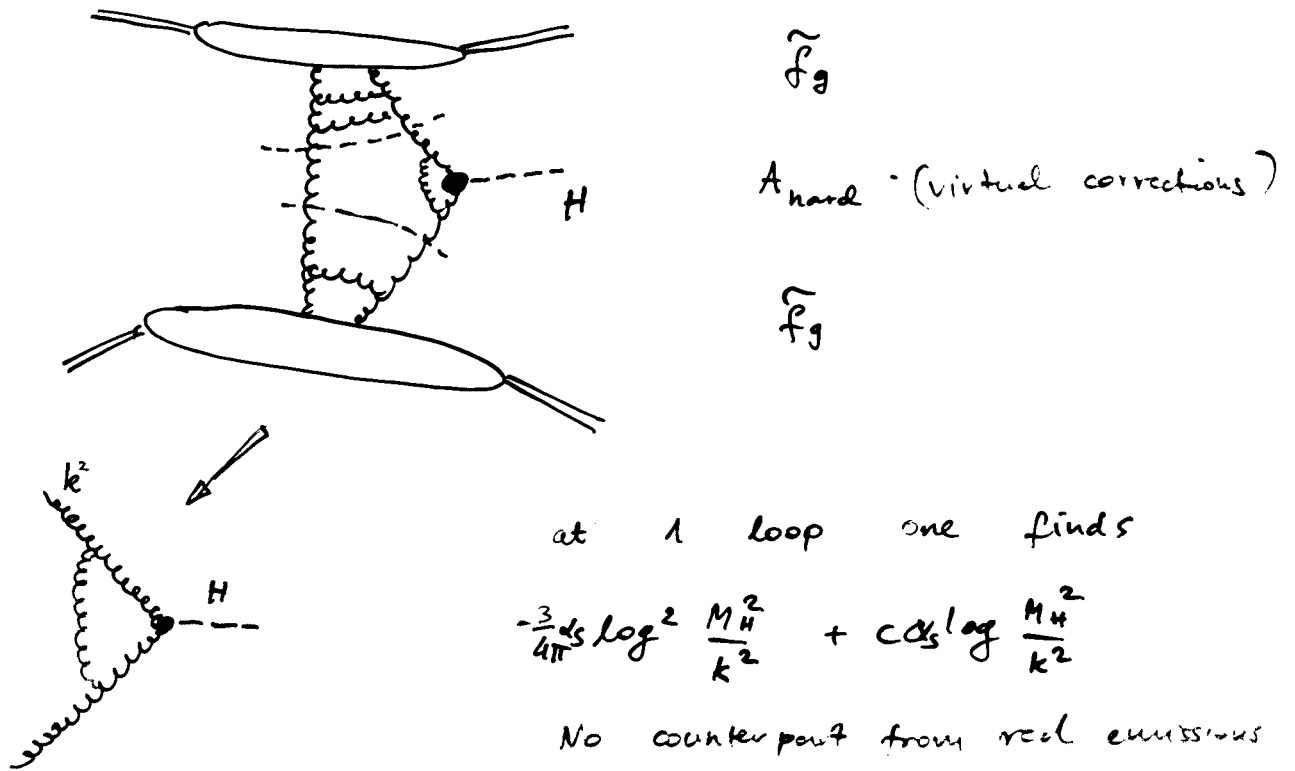 f̃g
H
A hard · (virtual corrections)
f̃g
k²
at 1 loop one finds
H
-3/4π αs log² M_H²/k² + c αs log M_H²/k²
No counterpart from real emissions